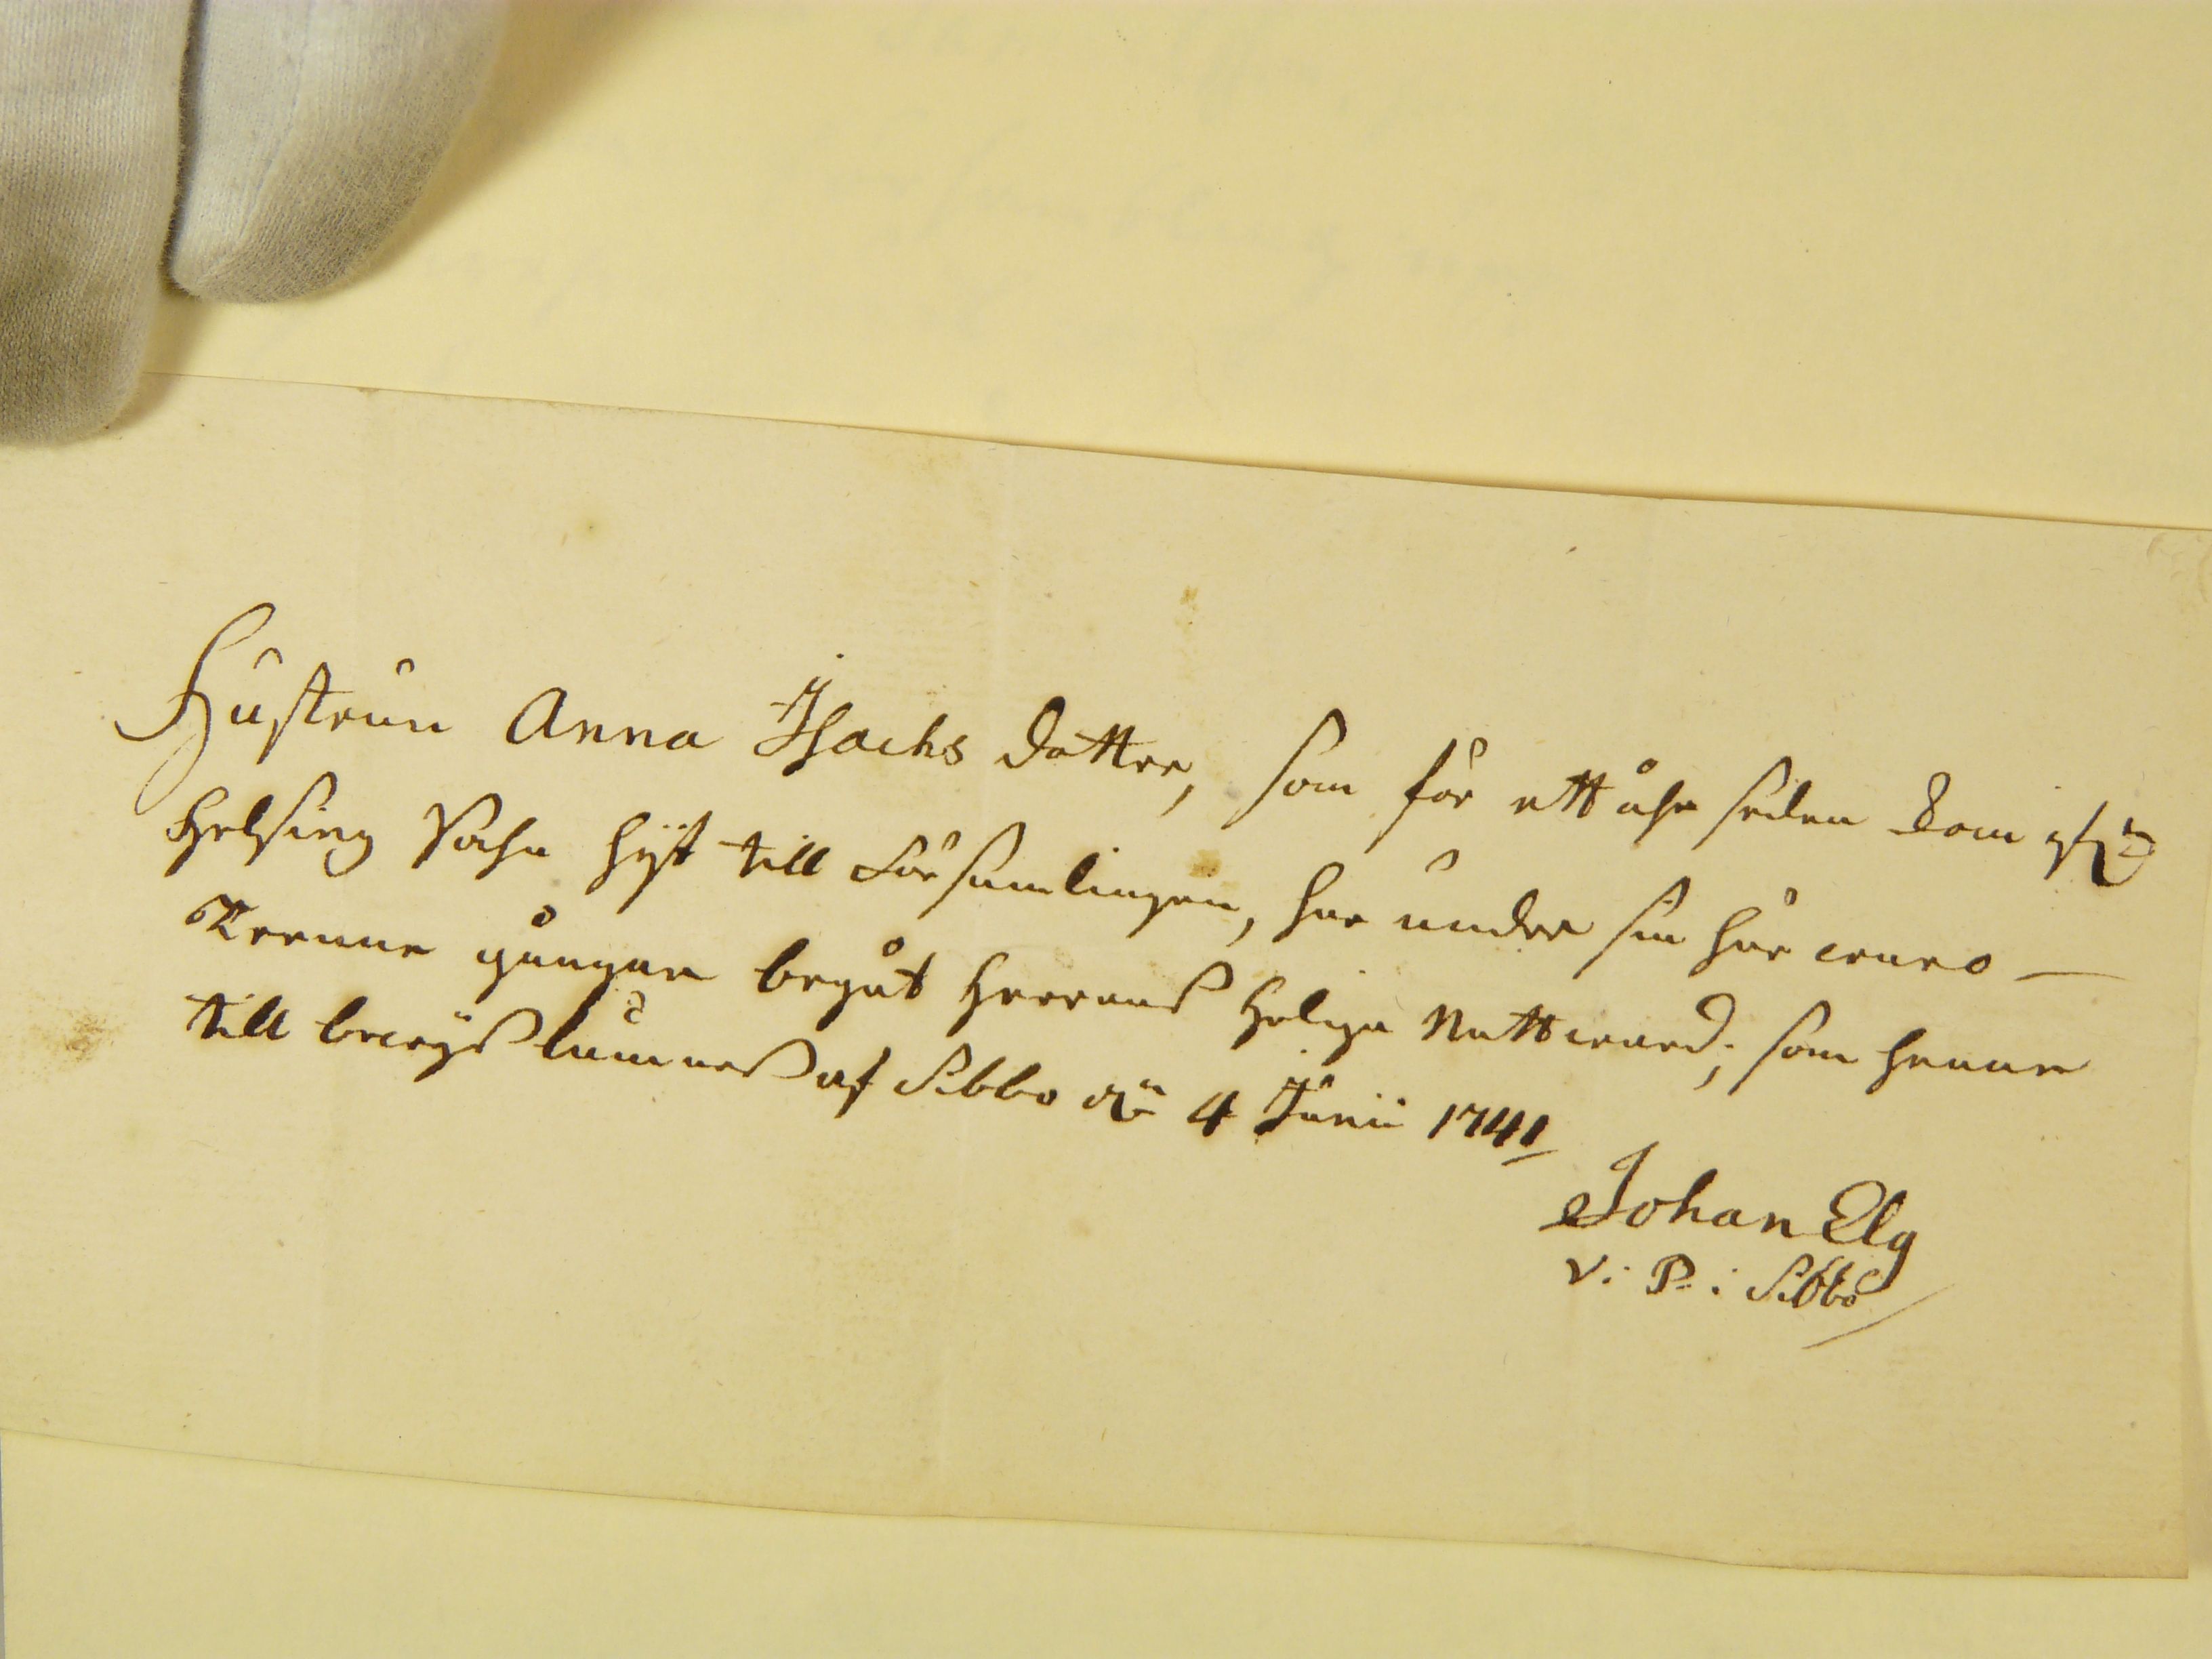 Hustrun Anna Isachs dotter, som för ett åhr seden kom ifrå
Helsing Sochn hijt till Församlingen, har under sin här waro —
Trenne gångor begåt Herrans Helga Nattward; som henne
till bewijs lämnas af Sibbo d. 4 Junii 1741
Johan Elg
V: P: i Sibbo